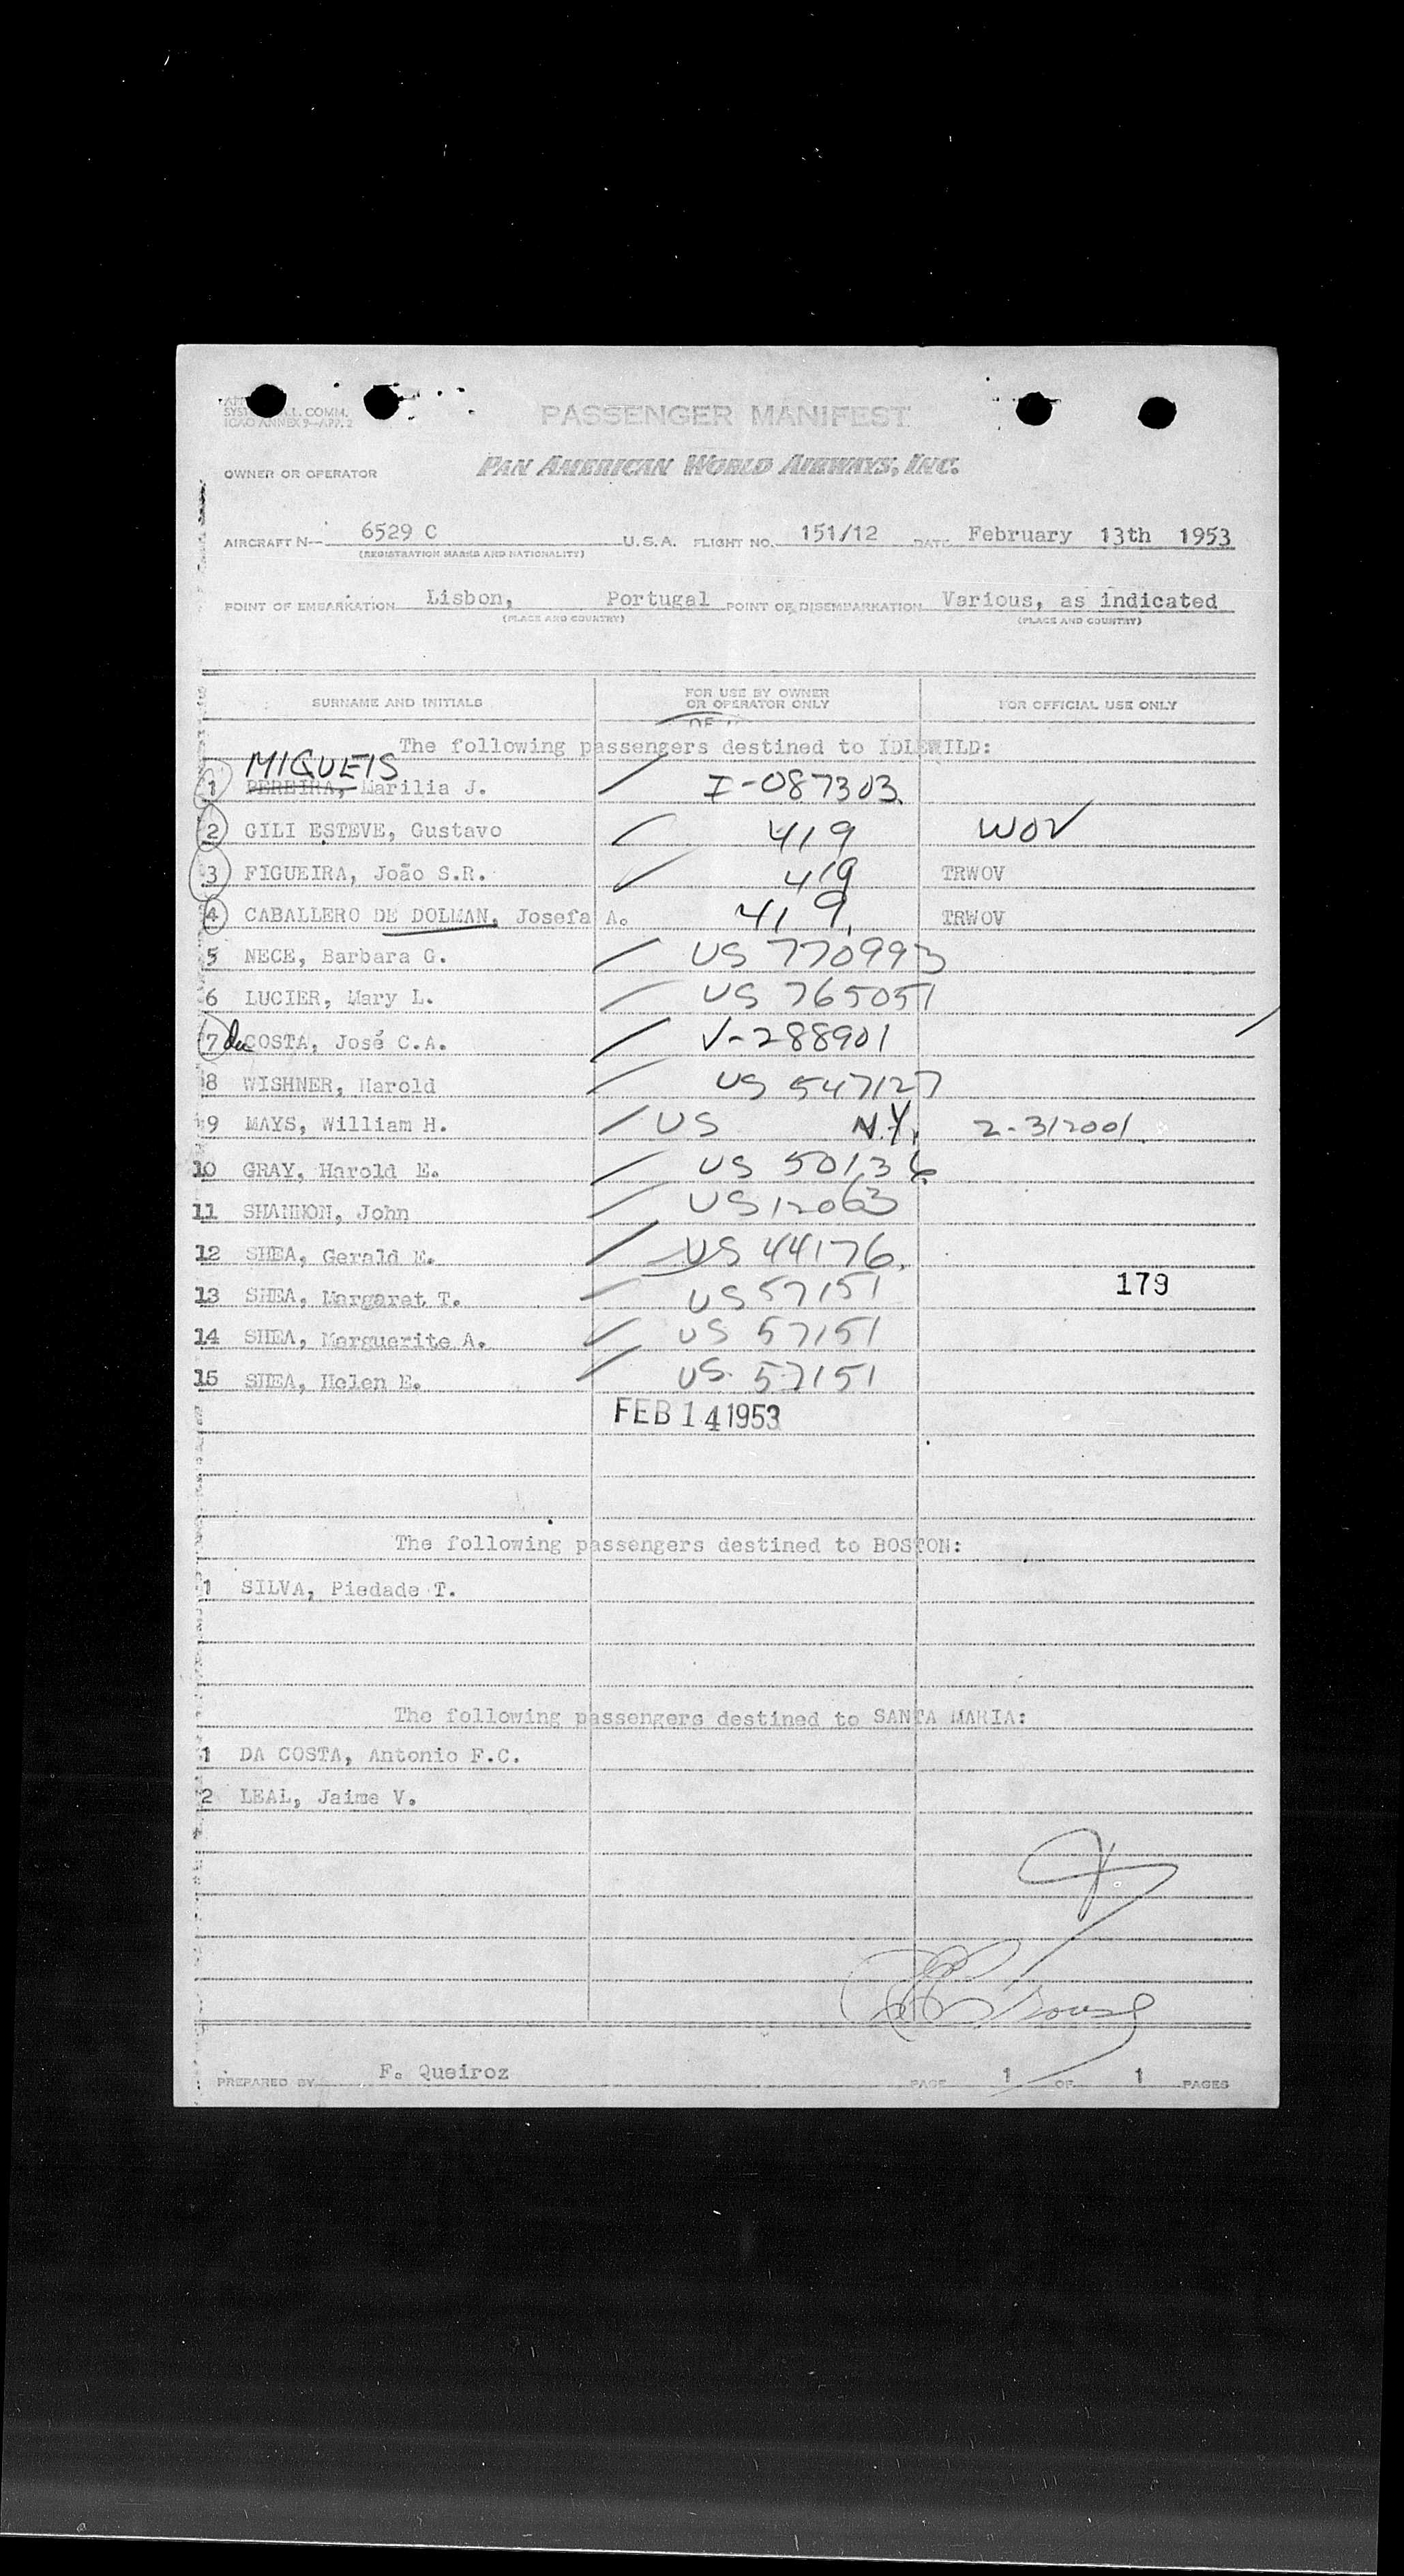 SYST L. COMM.
ICAO ANNEX 9—APP. 2
PASSENGER MANIFEST
OWNER OR OPERATOR PAN AMERICAN WORLD AIRWAYS, INC.
AIRCRAFT N— 6529 C U.S.A. FLIGHT NO. 151/12 DATE February 13th 1953
(REGISTRATION MARKS AND NATIONALITY)
POINT OF EMBARKATION Lisbon, Portugal POINT OF DISEMBARKATION Various, as indicated
(PLACE AND COUNTRY) (PLACE AND COUNTRY)
SURNAME AND INITIALS FOR USE BY OWNER OR OPERATOR ONLY FOR OFFICIAL USE ONLY
The following passengers destined to IDLEWILD:
MIQUEIS
1 PEREIRA, Marilia J. I-087303.
2 GILI ESTEVE, Gustavo 419 WOV
3 FIGUEIRA, João S.R. 419 TRWOV
4 CABALLERO DE DOLMAN, Josefa A. 419. TRWOV
5 NECE, Barbara G. US 770993
6 LUCIER, Mary L. US 765051
7 da COSTA, José C.A. V-288901
8 WISHNER, Harold US 547127
9 MAYS, William H. US N.Y. 2-312001.
10 GRAY, Harold E. US 50136
11 SHANNON, John US 12063
12 SHEA, Gerald E. US 44176.
13 SHEA, Margaret T. US 57151 179
14 SHEA, Marguerite A. US 57151
15 SHEA, Helen E. US. 57151
FEB 14 1953
The following passengers destined to BOSTON:
1 SILVA, Piedade T.
The following passengers destined to SANTA MARIA:
1 DA COSTA, Antonio F.C.
2 LEAL, Jaime V.
PREPARED BY F. Queiroz PAGE 1 OF 1 PAGES